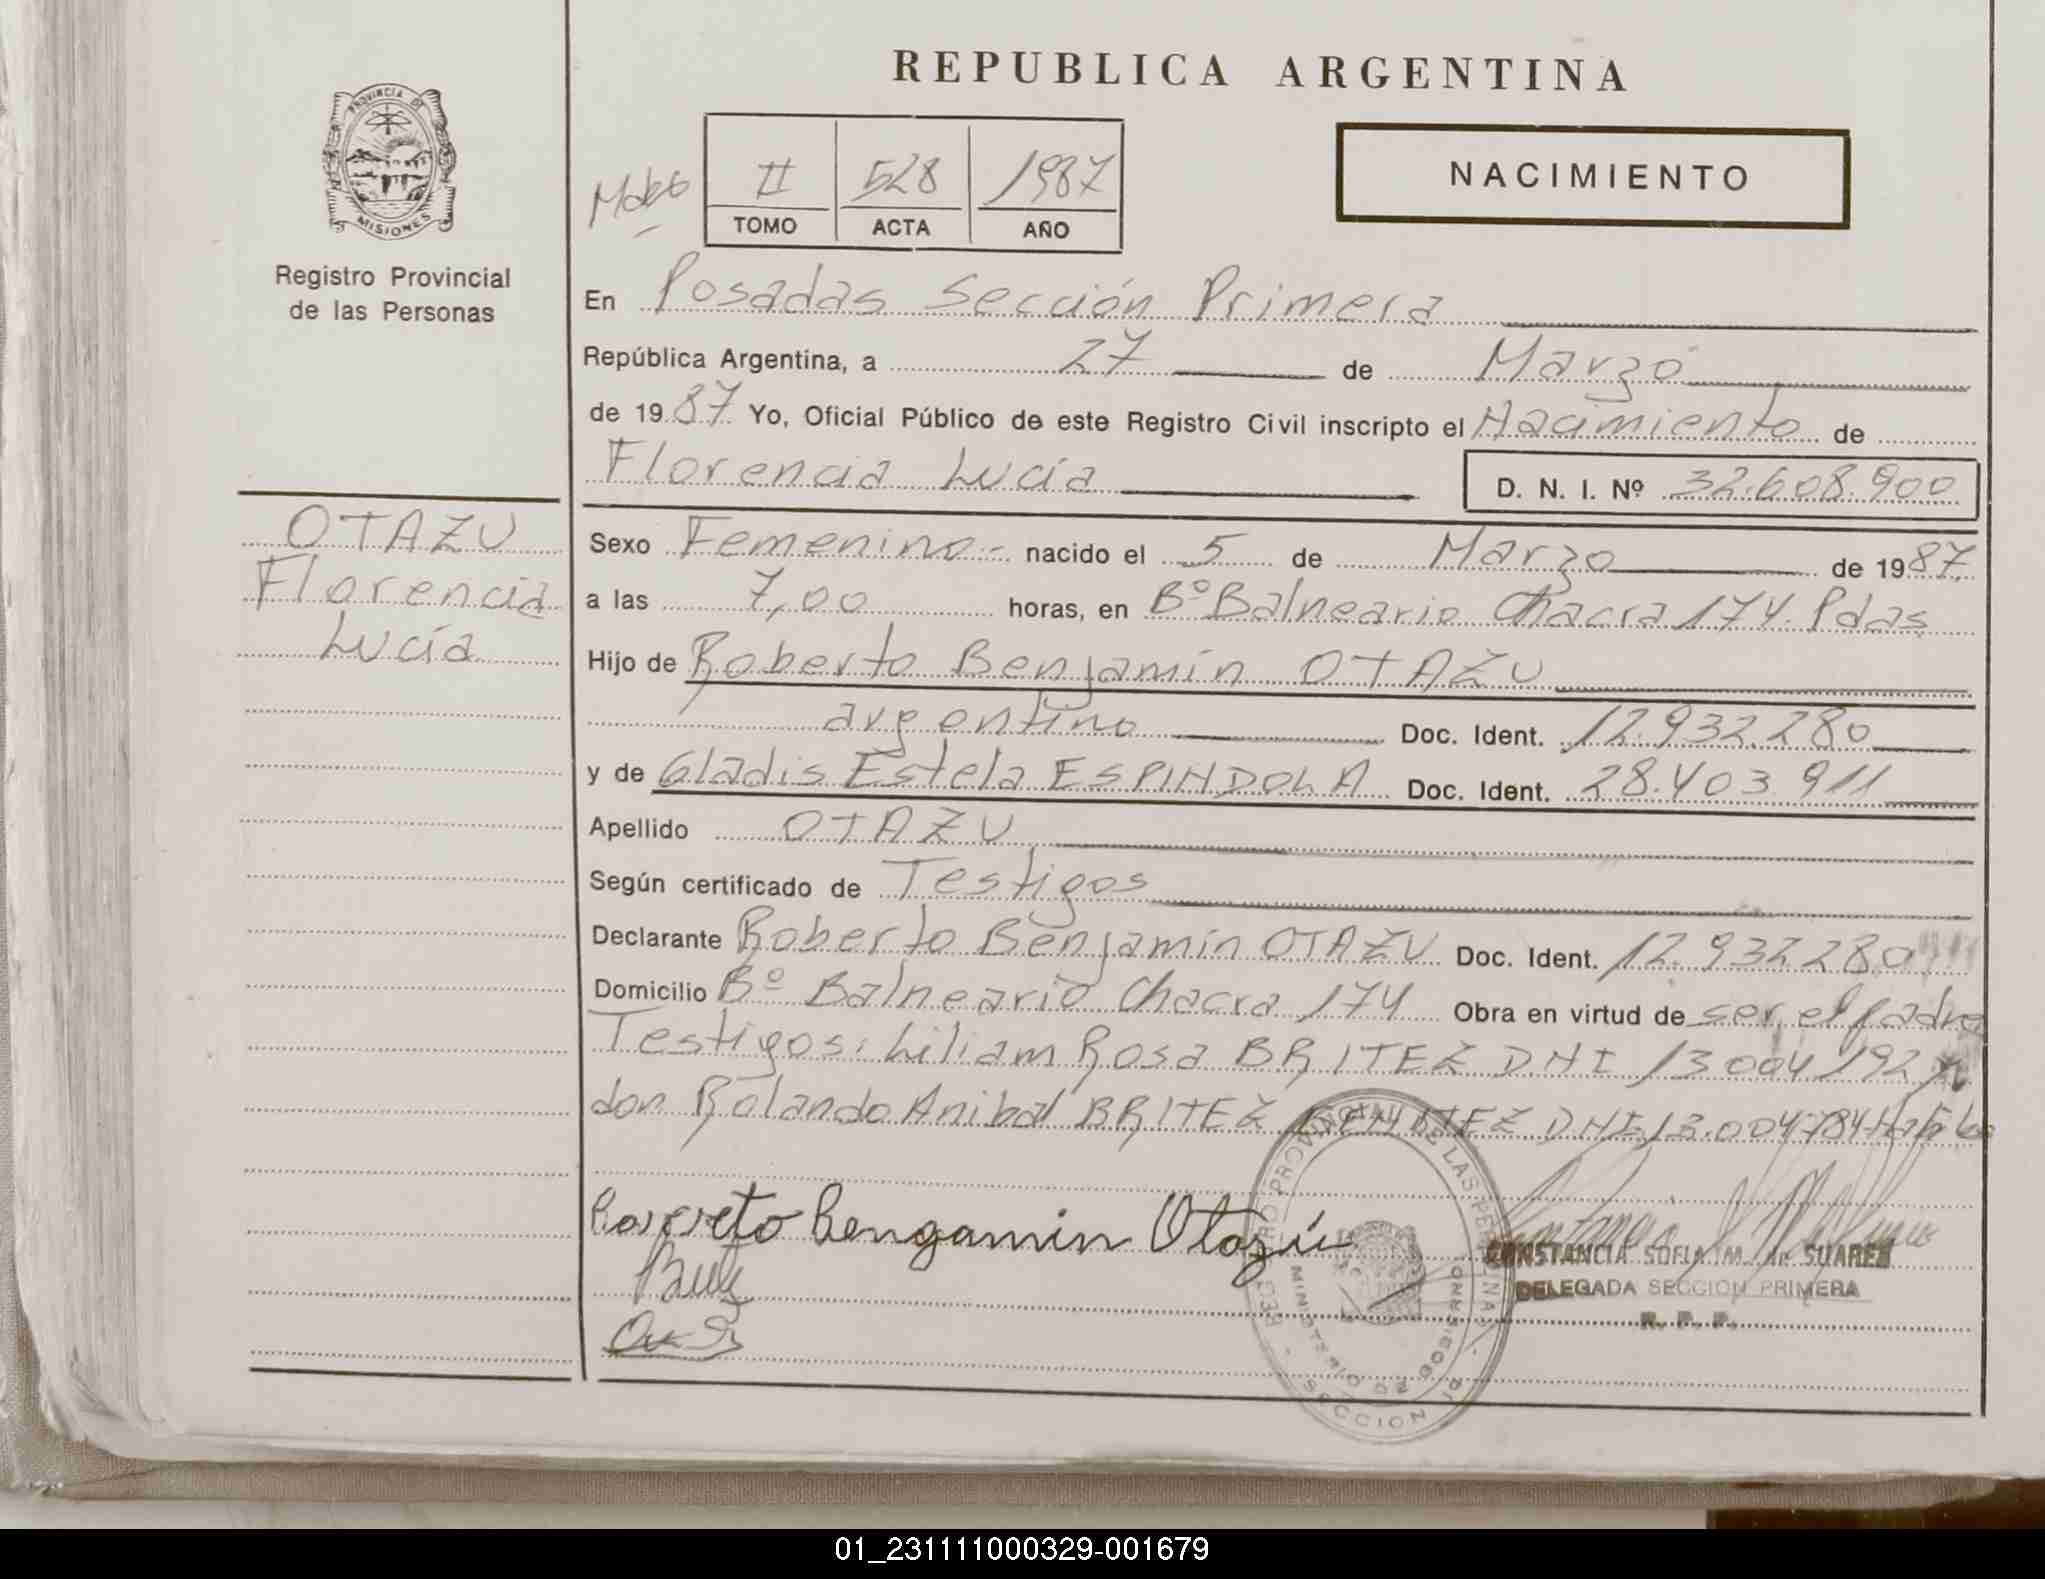 REPUBLICA ARGENTINA
PROVINCIA DE MISIONES
Registro Provincial
de las Personas
II 528 1987
TOMO ACTA AÑO
NACIMIENTO
En Posadas Sección Primera
República Argentina, a 27 de Marzo
de 1987 Yo, Oficial Público de este Registro Civil inscripto el Nacimiento de
Florencia Lucía D. N. I. Nº 32.608.900
OTAZU
Florencia
Lucía
Sexo Femenino.- nacido el 5 de Marzo de 1987.
a las 7,00 horas, en Bº Balneario Chacra 174. Pdas.
Hijo de Roberto Benjamín OTAZU
argentino Doc. Ident. 12.932.280
y de Gladis Estela ESPINDOLA Doc. Ident. 28.403.911
Apellido OTAZU
Según certificado de Testigos
Declarante Roberto Benjamín OTAZU Doc. Ident. 12.932.280
Domicilio Bº Balneario Chacra 174 Obra en virtud de ser el padre
Testigos: Liliam Rosa BRITEZ DNI 13.004.192 y
don Rolando Anibal BRITEZ BENITEZ DNI. 13.004.784
Otazú
CONSTANCIA SOFIA M. de SUAREZ
DELEGADA SECCION PRIMERA
R. P. P.
REGISTRO PROVINCIAL DE LAS PERSONAS
MINISTERIO DE GOBIERNO
SECCION
01_231111000329-001679